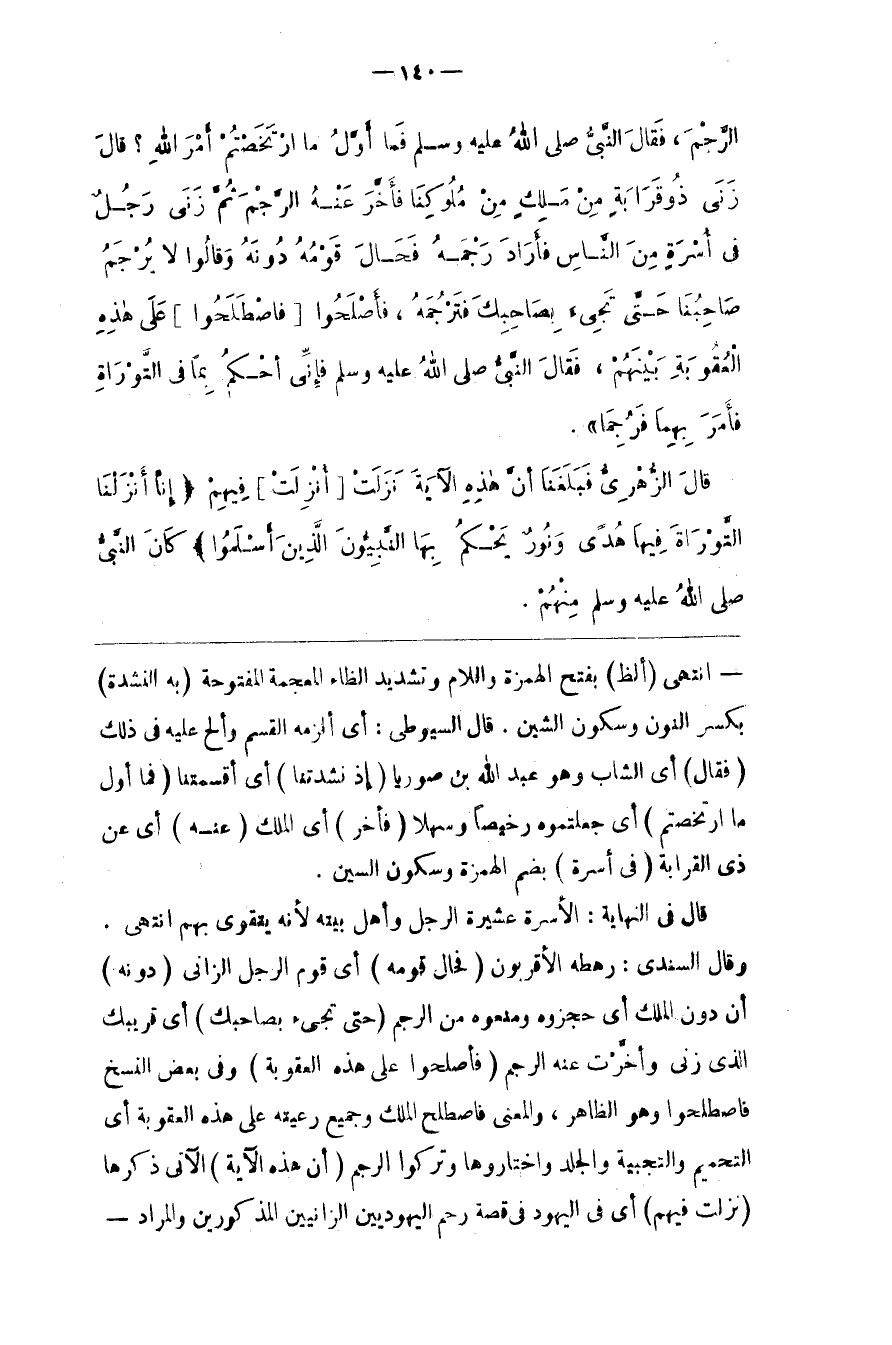 — ١٤٠ —
الرَّجْمَ ، فَقَالَ النَّبىُّ صلى اللهُ عليه وسلم فَمَا أَوَّلُ ما ارْتَخَصْتُمْ أَمْرَ اللهِ ؟ قالَ
زَنَى ذُو قَرَابَةٍ مِنْ مَلِكٍ مِنْ مُلُوكِنَا فأَخَّرَ عَنْهُ الرَّجْمَ ثُمَّ زَنَى رَجُلٌ
فى أُسْرَةٍ مِنَ النَّاسِ فأَرَادَ رَجْمَهُ فَحَالَ قَوْمُهُ دُونَهُ وَقالُوا لا يُرْجَمُ
صَاحِبُنَا حَتَّى تَجِىءَ بِصَاحِبِكَ فَتَرْجُمَهُ ، فأَصْلَحُوا [ فاصْطَلَحُوا ] عَلَى هٰذِهِ
الْعُقُوبَةِ بَيْنَهُمْ ، فَقَالَ النَّبىُّ صلى اللهُ عليه وسلم فإِنِّى أحْكُمُ بِمَا فى التَّوْرَاةِ
فأَمَرَ بِهِمَا فَرُجِمَا» .
قالَ الزُّهْرِىُّ فَبَلَغَنَا أنَّ هٰذِهِ الآيَةَ نَزَلَتْ [ أُنْزِلَتْ ] فِيهِمْ ﴿ إِنَّا أَنْزَلْنَا
التَّوْرَاةَ فِيهَا هُدًى وَنُورٌ يَحْكُمُ بِهَا النَّبِيُّونَ الَّذِينَ أَسْلَمُوا ﴾ كَانَ النَّبىُّ
صلى اللهُ عليه وسلم مِنْهُمْ .
— انتهى (ألظ) بفتح الهمزة واللام وتشديد الظاء المعجمة المفتوحة (به النشدة)
بكسر النون وسكون الشين . قال السيوطى : أى ألزمه القسم وألح عليه فى ذلك
( فقال) أى الشاب وهو عبد الله بن صوريا ( إذ نشدتنا ) أى أقسمتنا ( فما أول
ما ارتخصتم ) أى جعلتموه رخيصاً وسهلا ( فأخر ) أى الملك ( عنه ) أى عن
ذى القرابة ( فى أسرة ) بضم الهمزة وسكون السين .
قال فى النهاية : الأسرة عشيرة الرجل وأهل بيته لأنه يتقوى بهم انتهى .
وقال السندى : رهطه الأقربون ( فحال قومه ) أى قوم الرجل الزانى ( دونه )
أن دون الملك أى حجزوه ومنعوه من الرجم (حتى تجىء بصاحبك ) أى قريبك
الذى زنى وأخَّرْت عنه الرجم ( فأصلحوا على هذه العقوبة ) وفى بعض النسخ
فاصطلحوا وهو الظاهر ، والمعنى فاصطلح الملك وجميع رعيته على هذه العقوبة أى
التحميم والتجبية والجلد واختاروها وتركوا الرجم ( أن هذه الآية ) الآتى ذكرها
(نزلت فيهم) أى فى اليهود فى قصة رجم اليهوديين الزانيين المذكورين والمراد —